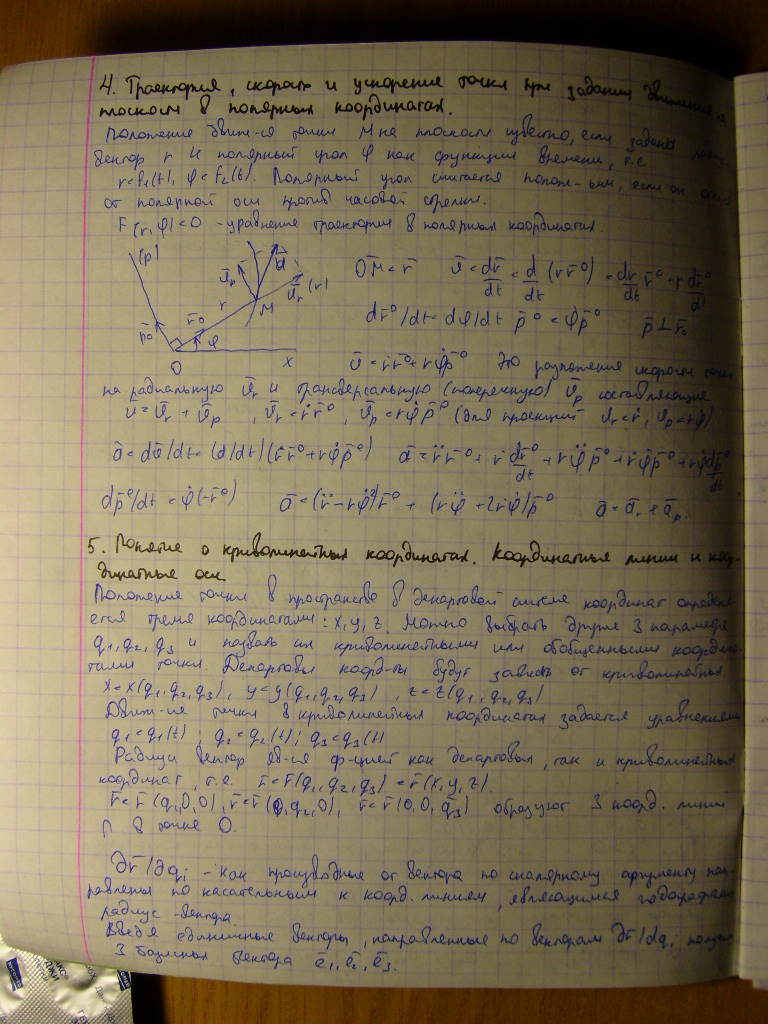 4. Траектория, скорость и ускорение точки при задании движения на
плоскости в полярных координатах.
Положение движ-ся точки M на плоскости известно, если заданы радиус
вектор r и полярный угол φ как функции времени, т.е
r=f₁(t), φ=f₂(t). Полярный угол считается полож-ым, если он
от полярной оси против часовой стрелки.
F(r,φ)=0 - уравнение траектории в полярных координатах.
(p) v̄p v̄ v̄r (r) r M p̄⁰ r̄⁰ φ O X
OM̄ = r̄ v̄ = dr̄/dt = d/dt (r r̄⁰) = dr/dt r̄⁰ + r dr̄⁰/dt
dr̄⁰/dt = dφ/dt p̄⁰ = φ̇p̄⁰ p̄ ⊥ r̄₀
v̄ = ṙr̄⁰ + rφ̇p̄⁰ Это разложения скорости точки
на радиальную v̄r и трансверсальную (поперечную) v̄p составляющие
v̄ = v̄r + v̄p, v̄r = ṙr̄⁰, v̄p = rφ̇p̄⁰ (для проекций vr = ṙ, vp = rφ̇)
ā = dv̄/dt = (d/dt)(ṙr̄⁰ + rφ̇p̄⁰) ā = r̈r̄⁰ + ṙ dr̄⁰/dt + rφ̈p̄⁰ + ṙφ̇p̄⁰ + rφ̇ dp̄⁰/dt
dp̄⁰/dt = φ̇(-r̄⁰) ā = (r̈ - rφ̇²)r̄⁰ + (rφ̈ + 2ṙφ̇)p̄⁰ ā = ār + āp.
5. Понятие о криволинейных координатах. Координатные линии и коор-
динатные оси.
Положение точки в пространстве в декартовой системе координат определя-
ется тремя координатами: x, y, z. Можно выбрать другие 3 параметра
q₁, q₂, q₃ и назвать их криволинейными или обобщенными координа-
тами точки. Декартовы коорд-ты будут зависеть от криволинейных
x = x(q₁, q₂, q₃), y = y(q₁, q₂, q₃), z = z(q₁, q₂, q₃)
Движ-ие точки в криволинейных координатах задается уравнениями
q₁ = q₁(t); q₂ = q₂(t); q₃ = q₃(t)
Радиус вектор яв-ся ф-цией как декартовых, так и криволинейных
координат, т.е. r̄ = r̄(q₁, q₂, q₃) = r̄(x, y, z).
r̄ = r̄(q₁, 0, 0), r̄ = r̄(0, q₂, 0), r̄ = r̄(0, 0, q₃) образуют 3 коорд. линии
в точке O.
∂r̄/∂qᵢ - как производные от вектора по скалярному аргументу нап-
равлены по касательным к коорд. линиям, являющимся годографами
радиус-вектора.
Введя единичные векторы, направленные по векторам ∂r̄/dqᵢ
3 базисных вектора ē₁, ē₂, ē₃.